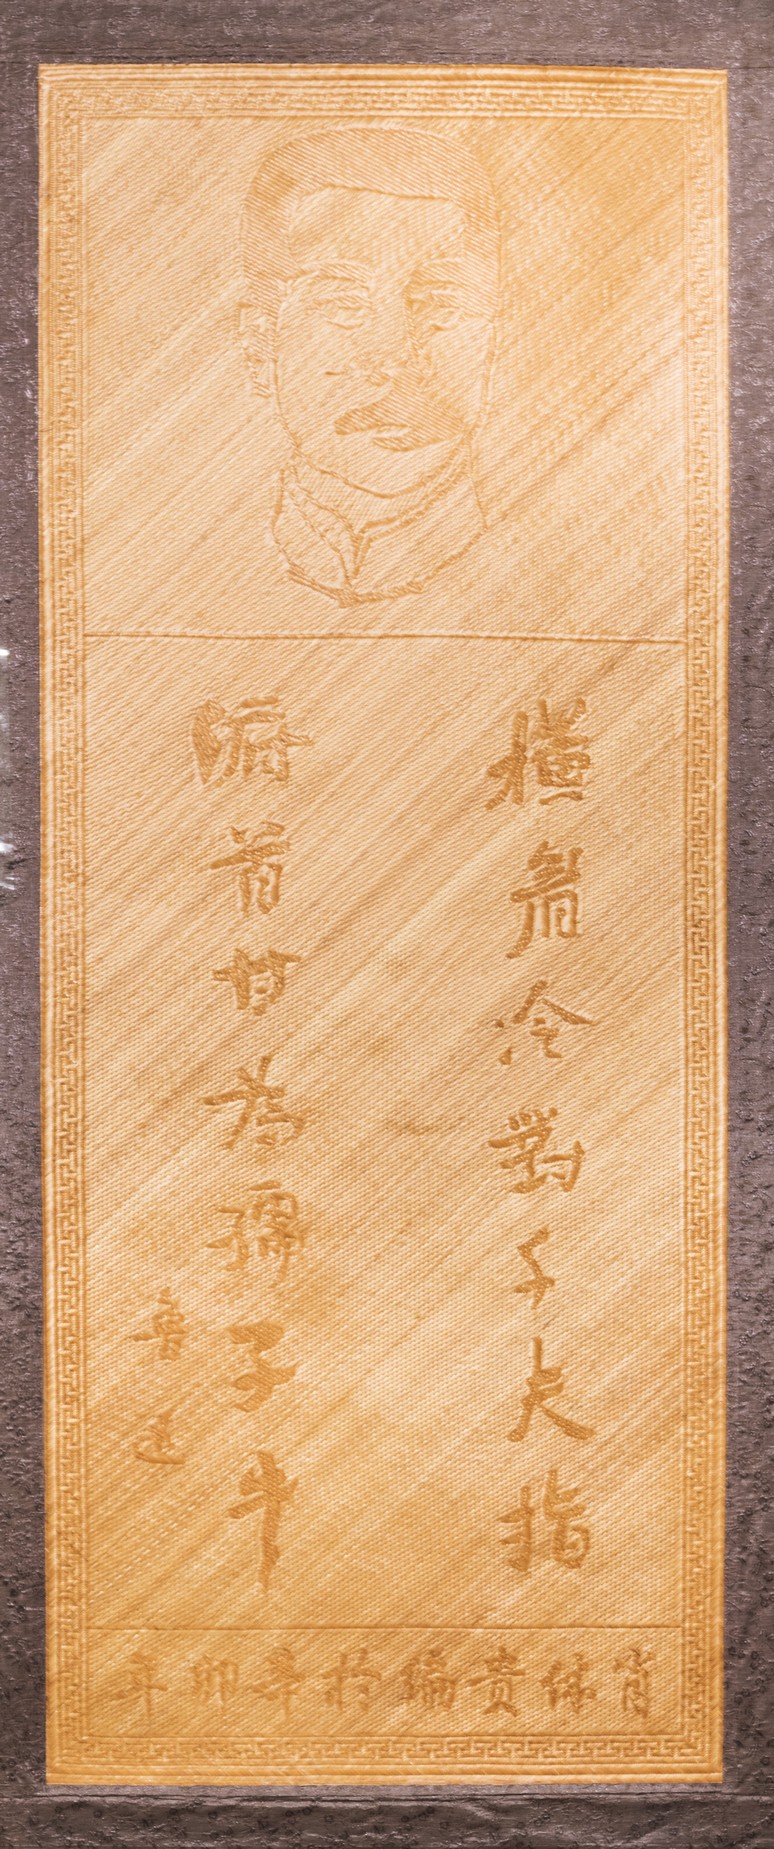 橫眉冷對千夫指
俯首甘為孺子牛
魯迅
肖体貴編於辛卯年